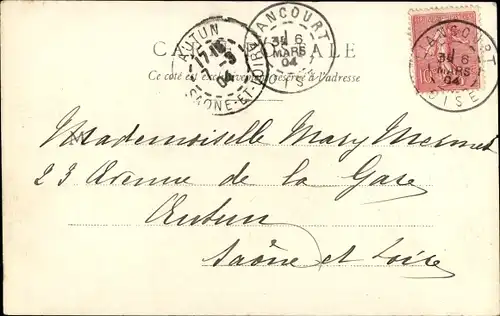 CARTE POSTALE
Ce côté est exclusivement réservé à l'adresse
AUTUN
04
SAONE-ET-LOIRE
LIANCOURT
6
MARS
04
OISE
LIANCOURT
6
MARS
04
OISE
M
Mademoiselle Mary Mesmet
23 Avenue de la Gare
Autun
Saône et Loire